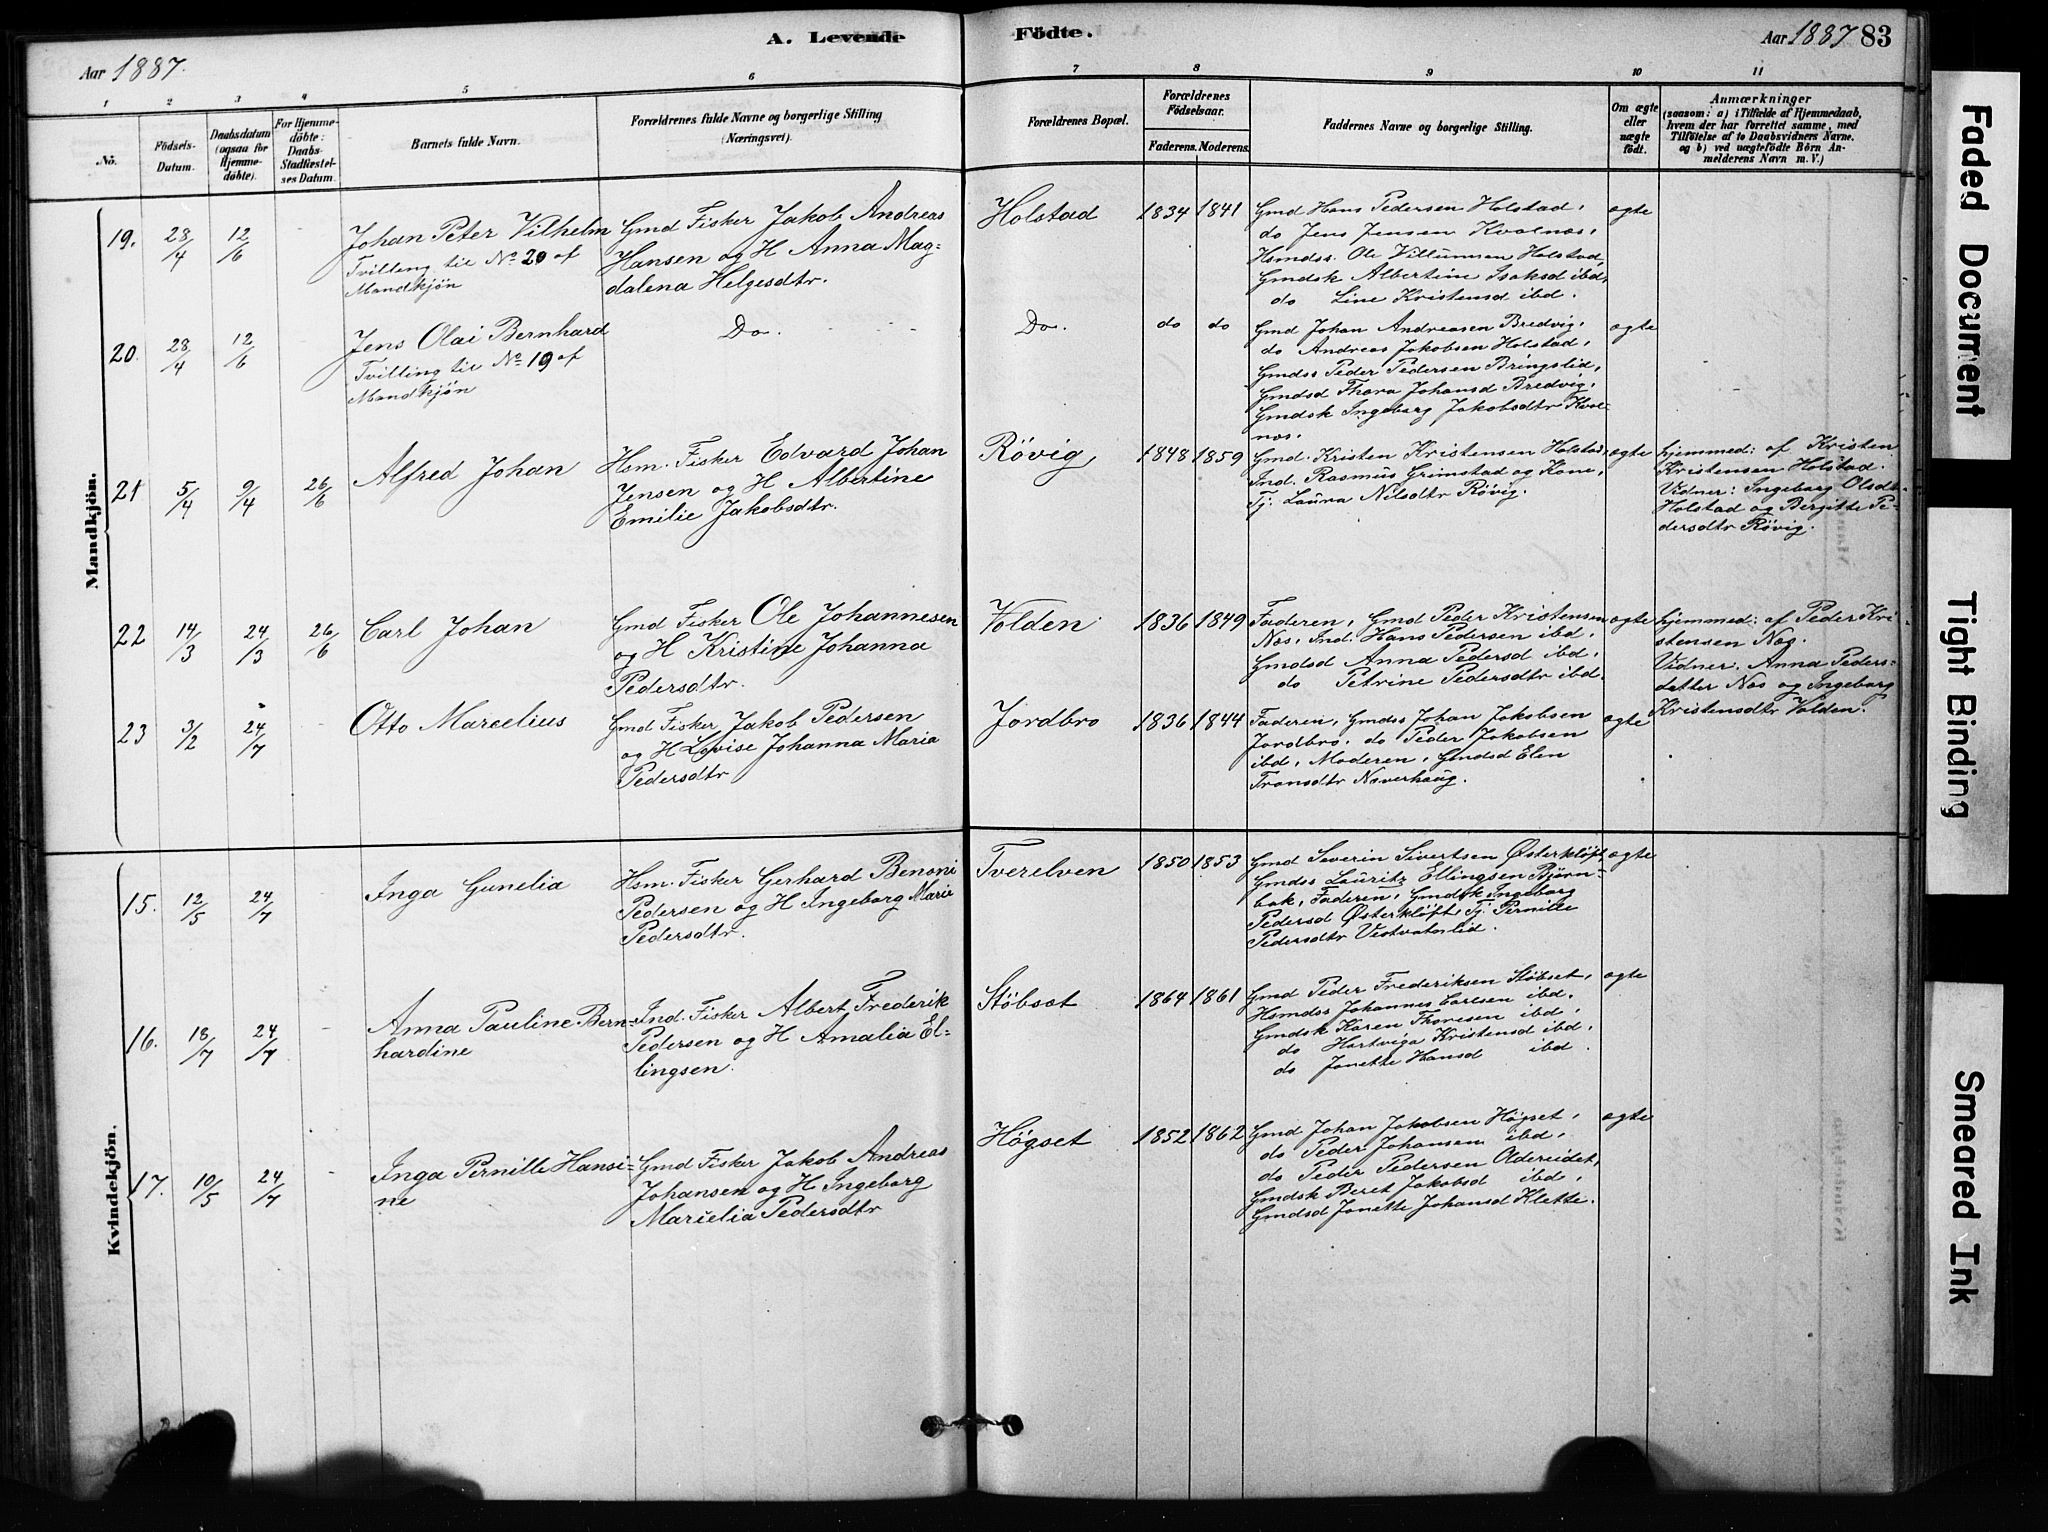 A. Levende Födte.
Aar 1887.
Aar 1887 83
1 2 3 4 5 6 7 8 9 10 11
No.
Födsels-Datum.
Daabsdatum (ogsaa for Hjemmedöbte).
For Hjemmedöbte: Daabs-Stadfæstelses Datum.
Barnets fulde Navn.
Forældrenes fulde Navne og borgerlige Stilling (Næringsvei).
Forældrenes Bopæl.
Forældrenes Födselsaar.
Faderens. Moderens.
Faddernes Navne og borgerlige Stilling.
Om ægte eller uægte födt.
Anmærkninger
(saasom: a) i Tilfælde af Hjemmedaab, hvem der har forrettet samme, med Tilföielse af to Daabsvidners Navne. og b) ved uægtefödte Börn Anmelderens Navn m. V.)
Mandkjön.
19. 28/4 12/6
Johan Peter Vilhelm
Tvilling til No 20 af
Mandkjön
Gmd Fisker Jakob Andreas
Hansen og H Anna Mag-
dalena Helgesdtr.
Holstad 1834 1841
Gmd Hans Pedersen Holstad,
do Jens Jensen Kvalnæs,
Hsmdss. Ole Villumsen Holstad,
Gmdsk Albertine Isaksd ibd,
do Line Kristensd ibd.
ægte
20. 28/4 12/6
Jens Olai Bernhard
Tvilling til No 19 af
Mandkjön
Do.
Do. do do
Gmd Johan Andreasen Bredvig,
do Andreas Jakobsen Holstad,
Gmdss Peder Pedersen Bringslid,
Gmdsd Thora Johansd Bredvig,
Gmdsk Ingeborg Jakobsdtr Kval-
næs.
ægte
21 5/4 9/4 26/6
Alfred Johan
Hsm. Fisker Edvard Johan
Jensen og H Albertine
Emilie Jakobsdtr.
Røvig 1848 1859
Gmd. Kristen Kristensen Holstad,
Ind. Rasmus Grimstad og Kone,
Tj. Laura Nilsdtr Røvig.
ægte
hjemmed: af Kristen
Kristensen Holstad.
Vidner: Ingeborg Olsdtr
Holstad og Bergitte Pe-
dersdtr Røvig.
22 14/3 24/3 26/6
Carl Johan
Gmd Fisker Ole Johannesen
og H Kristine Johanna
Pedersdtr.
Volden 1836 1849
Faderen, Gmd Peder Kristensen
Næs, Ind. Hans Pedersen ibd,
Gmdsd Anna Pedersd ibd,
do Petrine Pedersdtr ibd.
ægte
hjemmed: af Peder Kri-
stensen Næs.
Vidner. Anna Peders-
datter Næs og Ingeborg
Kristensdtr Volden.
23 3/2 24/7
Otto Marcelius
Gmd Fisker Jakob Pedersen
og H Lovise Johanna Maria
Pedersdtr
Jordbro 1836 1844
Faderen, Gmdss Johan Jakobsen
Jordbro, do Peder Jakobsen
ibd, Moderen, Gmdsd Elen
Transdtr Naverhaug.
ægte
Kvindekjön.
15. 12/5 24/7
Inga Gunelia
Hsm. Fisker Gerhard Benoni
Pedersen og H Ingeborg Marie
Pedersdtr.
Tverelven 1850 1853
Gmd Severin Sivertsen Østerkløft,
Gmdss Lauritz Ellingsen Bjørn-
bak, Faderen, Gmdsk Ingeborg
Pedersd Østerkløft, Tj. Pernille
Pedersdtr Vestvatnlid.
ægte
16. 18/7 24/7
Anna Pauline Bern-
hardine
Ind. Fisker Albert Frederik
Pedersen og H Amalia El-
lingsen.
Støbset 1864 1861
Gmd Peder Frederiksen Støbset,
Hsmdss Johannes Carlsen ibd.
Gmdsk Karen Thoresen ibd,
do Hartviga Kristensd ibd,
do Jonette Hansd ibd.
ægte
17. 10/5 24/7
Inga Pernille Hansi-
ne
Gmd Fisker Jakob Andreas
Johansen og H Ingeborg
Marielia Pedersdtr
Høgset 1852 1862
Gmd Johan Jakobsen Høgset,
do Peder Johansen ibd,
do Peder Pedersen Aldereidet,
Gmdsk Beret Jakobsd ibd,
Gmdsd Jonette Johansd Klette.
ægte
Faded Document
Tight Binding
Smeared Ink